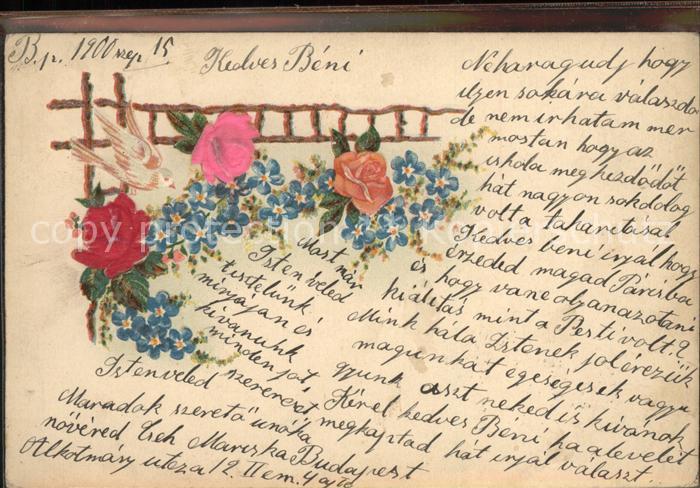 B.p. 1900 szep 15.
Kedves Béni
Neharagudj hogy
ilyen sokára válaszdo
de nem irhatam mer
mostan hogy az
iskola megkezdődőt
hát nagyon sok dolog
volta takaritásal
Kedves beni irjál hogy
érzeded magad Párisba
és hogy vane olyanazotani
kiálitás mint a Pesti volt.?
Mink hála Istenek jol érezük
magunkat egeségesek vagyu
gyunk aszt neked is kivánok
Kérel kedves Beni ha a levelét
megkaptad hát irjál választ.
Most már
Isten véled
tisztelünk
mnyájan és
kivánunk
minden jót
szerencsét
Isten veled
Maradok szerető unoka
növéred Cseh Mariska Budapest
Alkotmány utcza 12. II em. 4 ajtó
copy protection